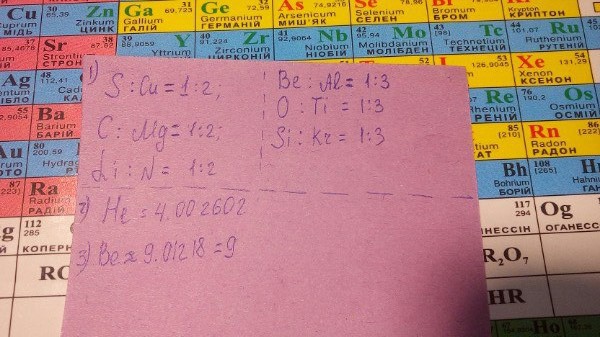 Cu 65,39 Zn Ga 31 69,723 Ge 32 72,59 As 74,9216 Se 78,96 Br Kr
Zinkum Gallium Germanium Arsenicum Selenium Bromum Krypton
МІДЬ ЦИНК ГАЛІЙ ГЕРМАНІЙ МИШ'ЯК СЕЛЕН БРОМ КРИПТОН
Sr 38 87,62 Y Zr Nb Mo Tc Ru
85,4678 88,9059 40 91,224 41 92,9064 42 95,94 101,07
Yttrium Zirconium Niobium Molibdenum Technetium Ruthenium
ЦИРКОНІЙ НІОБІЙ МОЛІБДЕН ТЕХНЕЦІЙ РУТЕНІЙ
Ag 48 112,41
126,9045 Xe 54 131,29
Xenon
КСЕНОН
Ba Barium БАРІЙ
Re 76 190,2 Os
Osmium
ОСМІЙ
Au 80 200,59
85 [210] Rn 86 [222]
Radon
РАДОН
Ra Radium РАДІЙ
Bh 108 [265]
Bohrium
БОРІЙ
112 285
КОПЕРН
117 294 Og
ОГАНЕССОН
R₂O₇
HR
Ho
1)
S : Cu = 1:2;
C : Mg = 1:2;
Li : N = 1:2
Be : Al = 1:3
O : Ti = 1:3
Si : Kr = 1:3
2) He = 4.002602
3) Be ≈ 9.01218 = 9